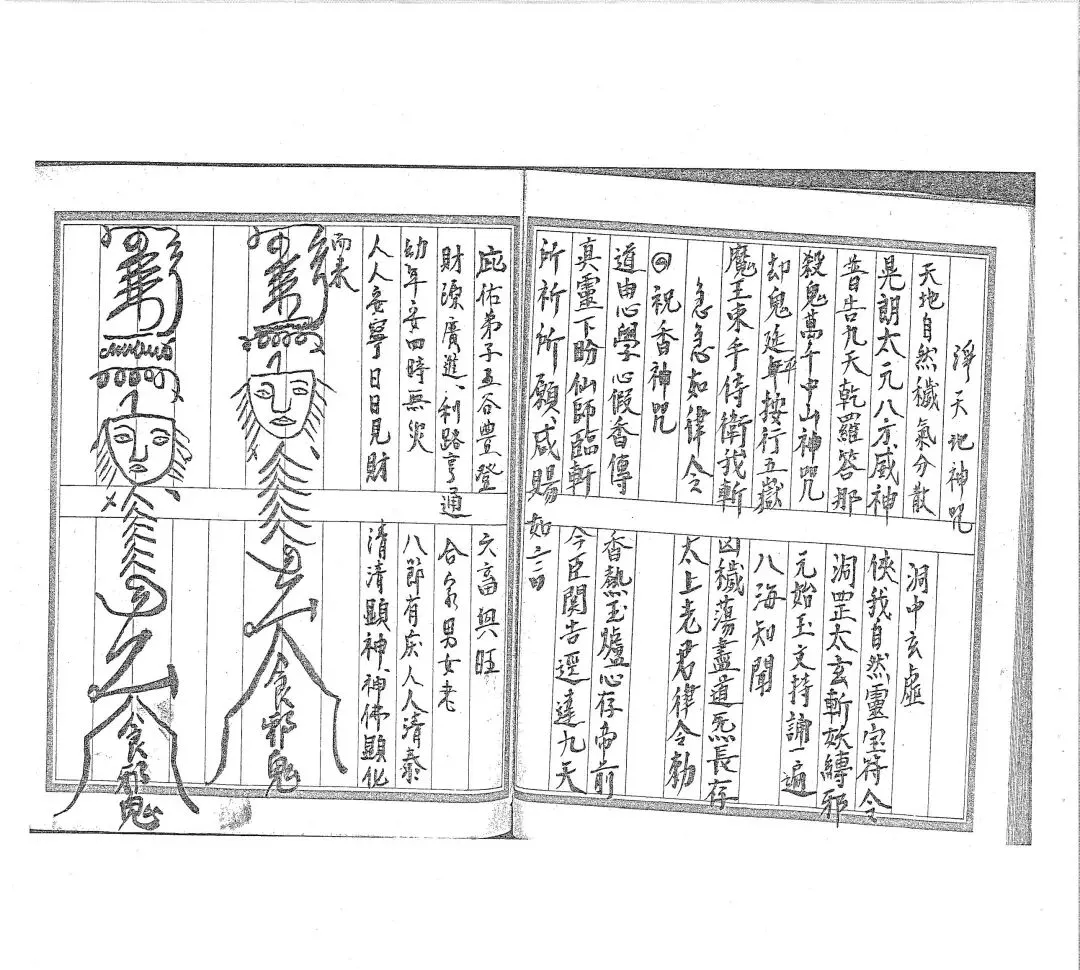 淨天地神咒
天地自然穢氣分散 洞中玄虛
晃朗太元八方威神 侠我自然靈宝符令
普告九天乾羅答那 洞罡太玄斬妖縛邪
殺鬼萬千中山神咒 元始玉文持誦一遍
却鬼延年按行五嶽 八海知聞
魔王束手侍衛我軒 凶穢蕩盡道炁長存
急急如律令 太上老君律令勅
祝香神咒
道由心學心假香傳 香热玉爐心存帝前
真靈下盼仙師臨軒 今臣関告逕達九天
所祈所願、咸賜如言
庇佑弟子五谷豊登 六畜興旺
財源廣進、利路亨通 合家男女老
幼年安四時無災 八節有庆人人清泰
人人安寧日日見財 清清顕神、神佛顕化
而来
食邪鬼
食邪鬼